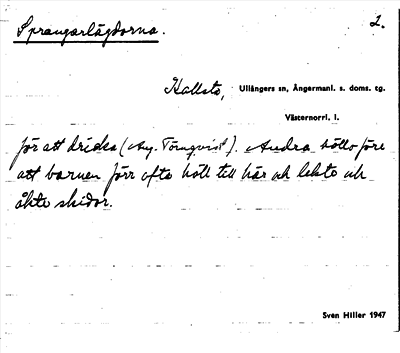 Sprangarlägdorna. 2.
Kallsta, Ullångers sn, Ångermanl. s. doms. tg.
Västernorrl. l.
för att dricka (Aug. Törnqvist). Andra höllo före
att barnen förr ofta höll till här och lekte och
åkte skidor.
Sven Hiller 1947